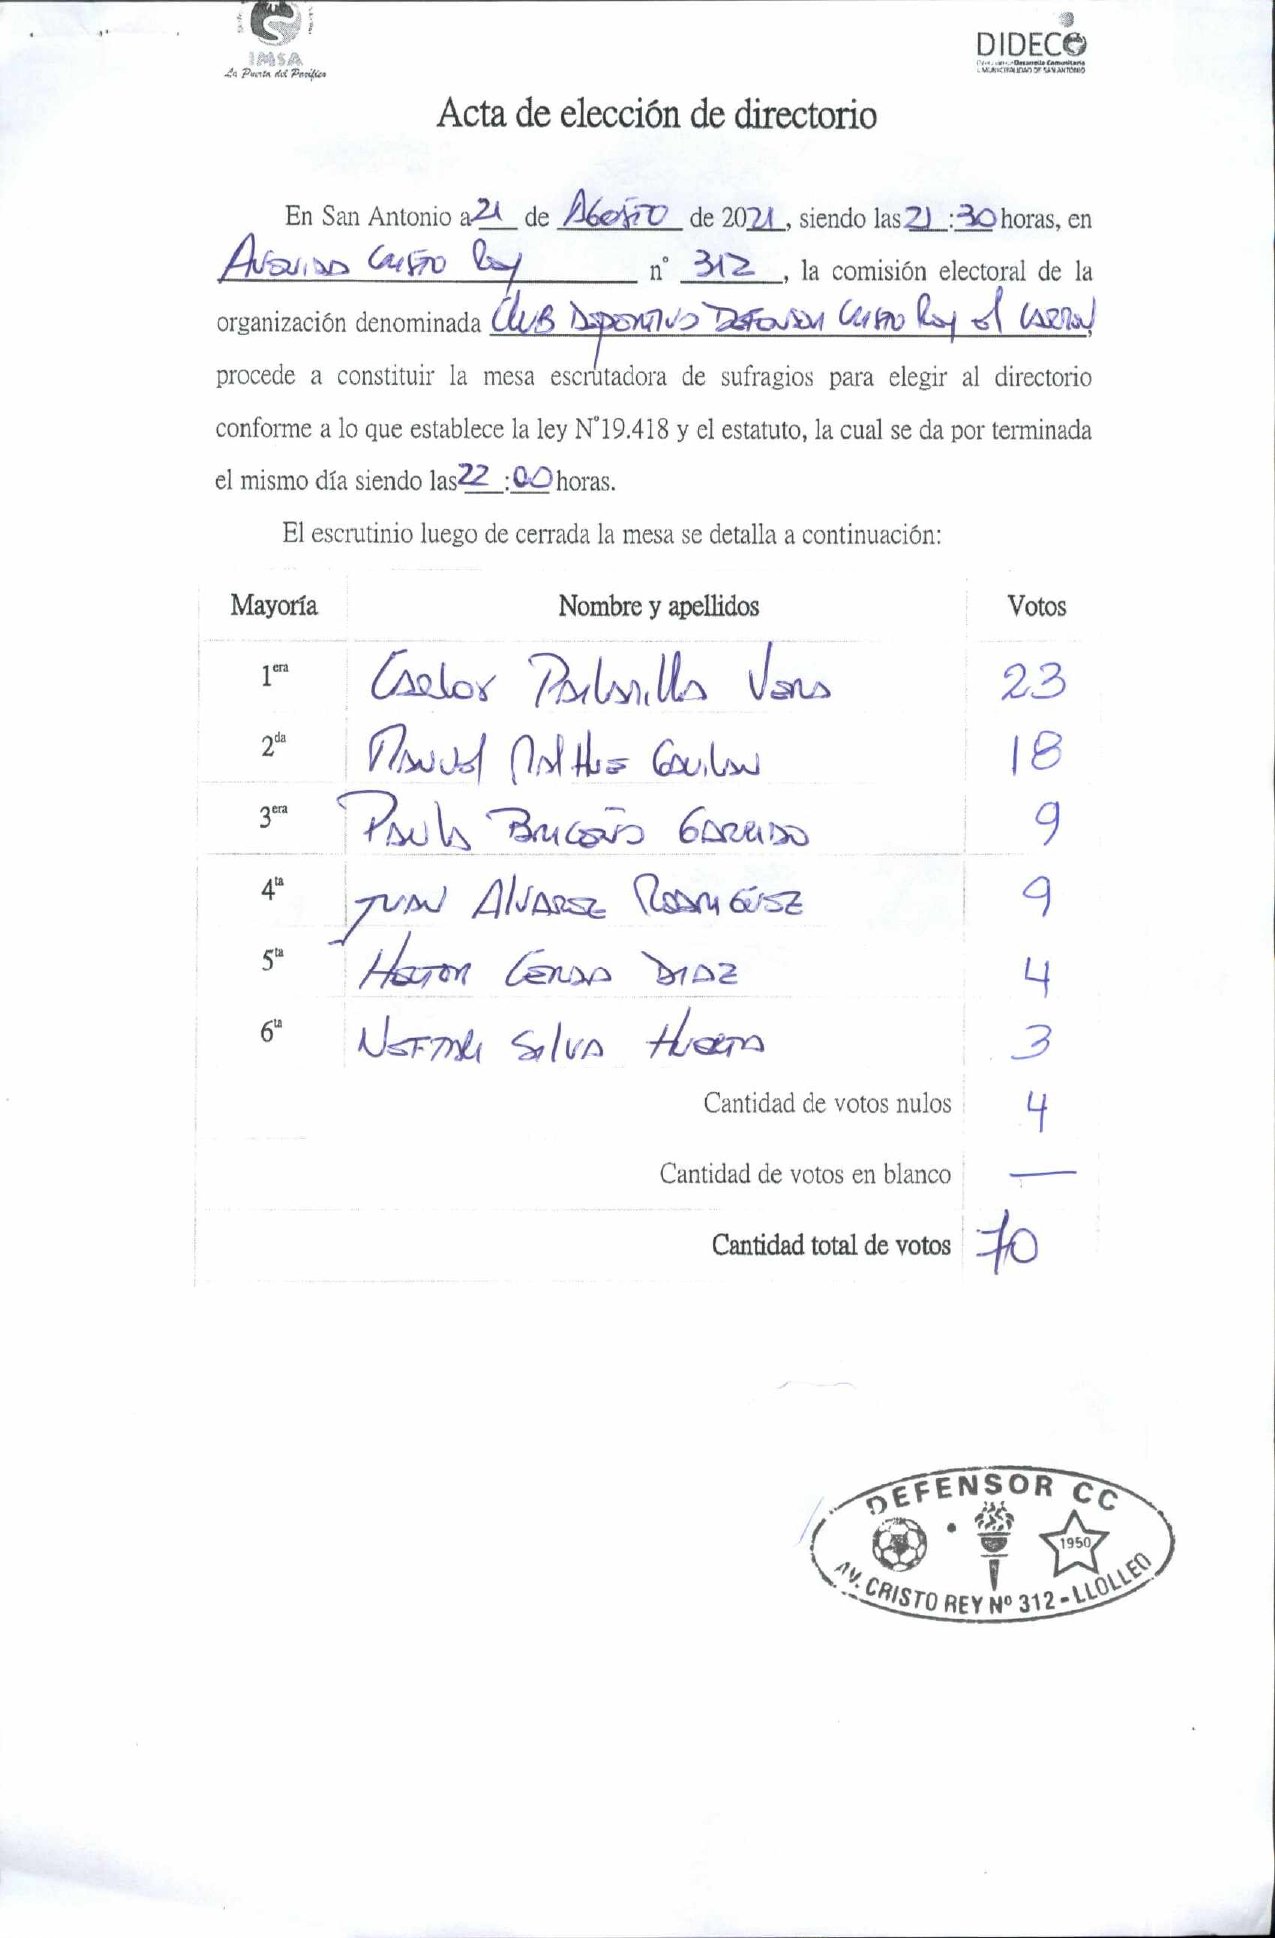 IMSA
La Puerta del Pacífico
DIDECO
MUNICIPALIDAD DE SAN ANTONIO
Acta de elección de directorio
En San Antonio a 21 de Agosto de 2021, siendo las 21:30 horas, en
Avenida Cristo Rey n° 312, la comisión electoral de la
organización denominada Club Deportivo Defensor Cristo Rey el
procede a constituir la mesa escrutadora de sufragios para elegir al directorio
conforme a lo que establece la ley N°19.418 y el estatuto, la cual se da por terminada
el mismo día siendo las 22:00 horas.
El escrutinio luego de cerrada la mesa se detalla a continuación:
Mayoría Nombre y apellidos Votos
1era Carlos Vera 23
2da Manuel 18
3era Paula Briceño Garrido 9
4ta Juan Alvarez Rodriguez 9
5ta Hector Cerda Diaz 4
6ta Neftali Silva Huerta 3
Cantidad de votos nulos 4
Cantidad de votos en blanco —
Cantidad total de votos 70
DEFENSOR CC
1950
AV. CRISTO REY Nº 312 - LLOLLEO